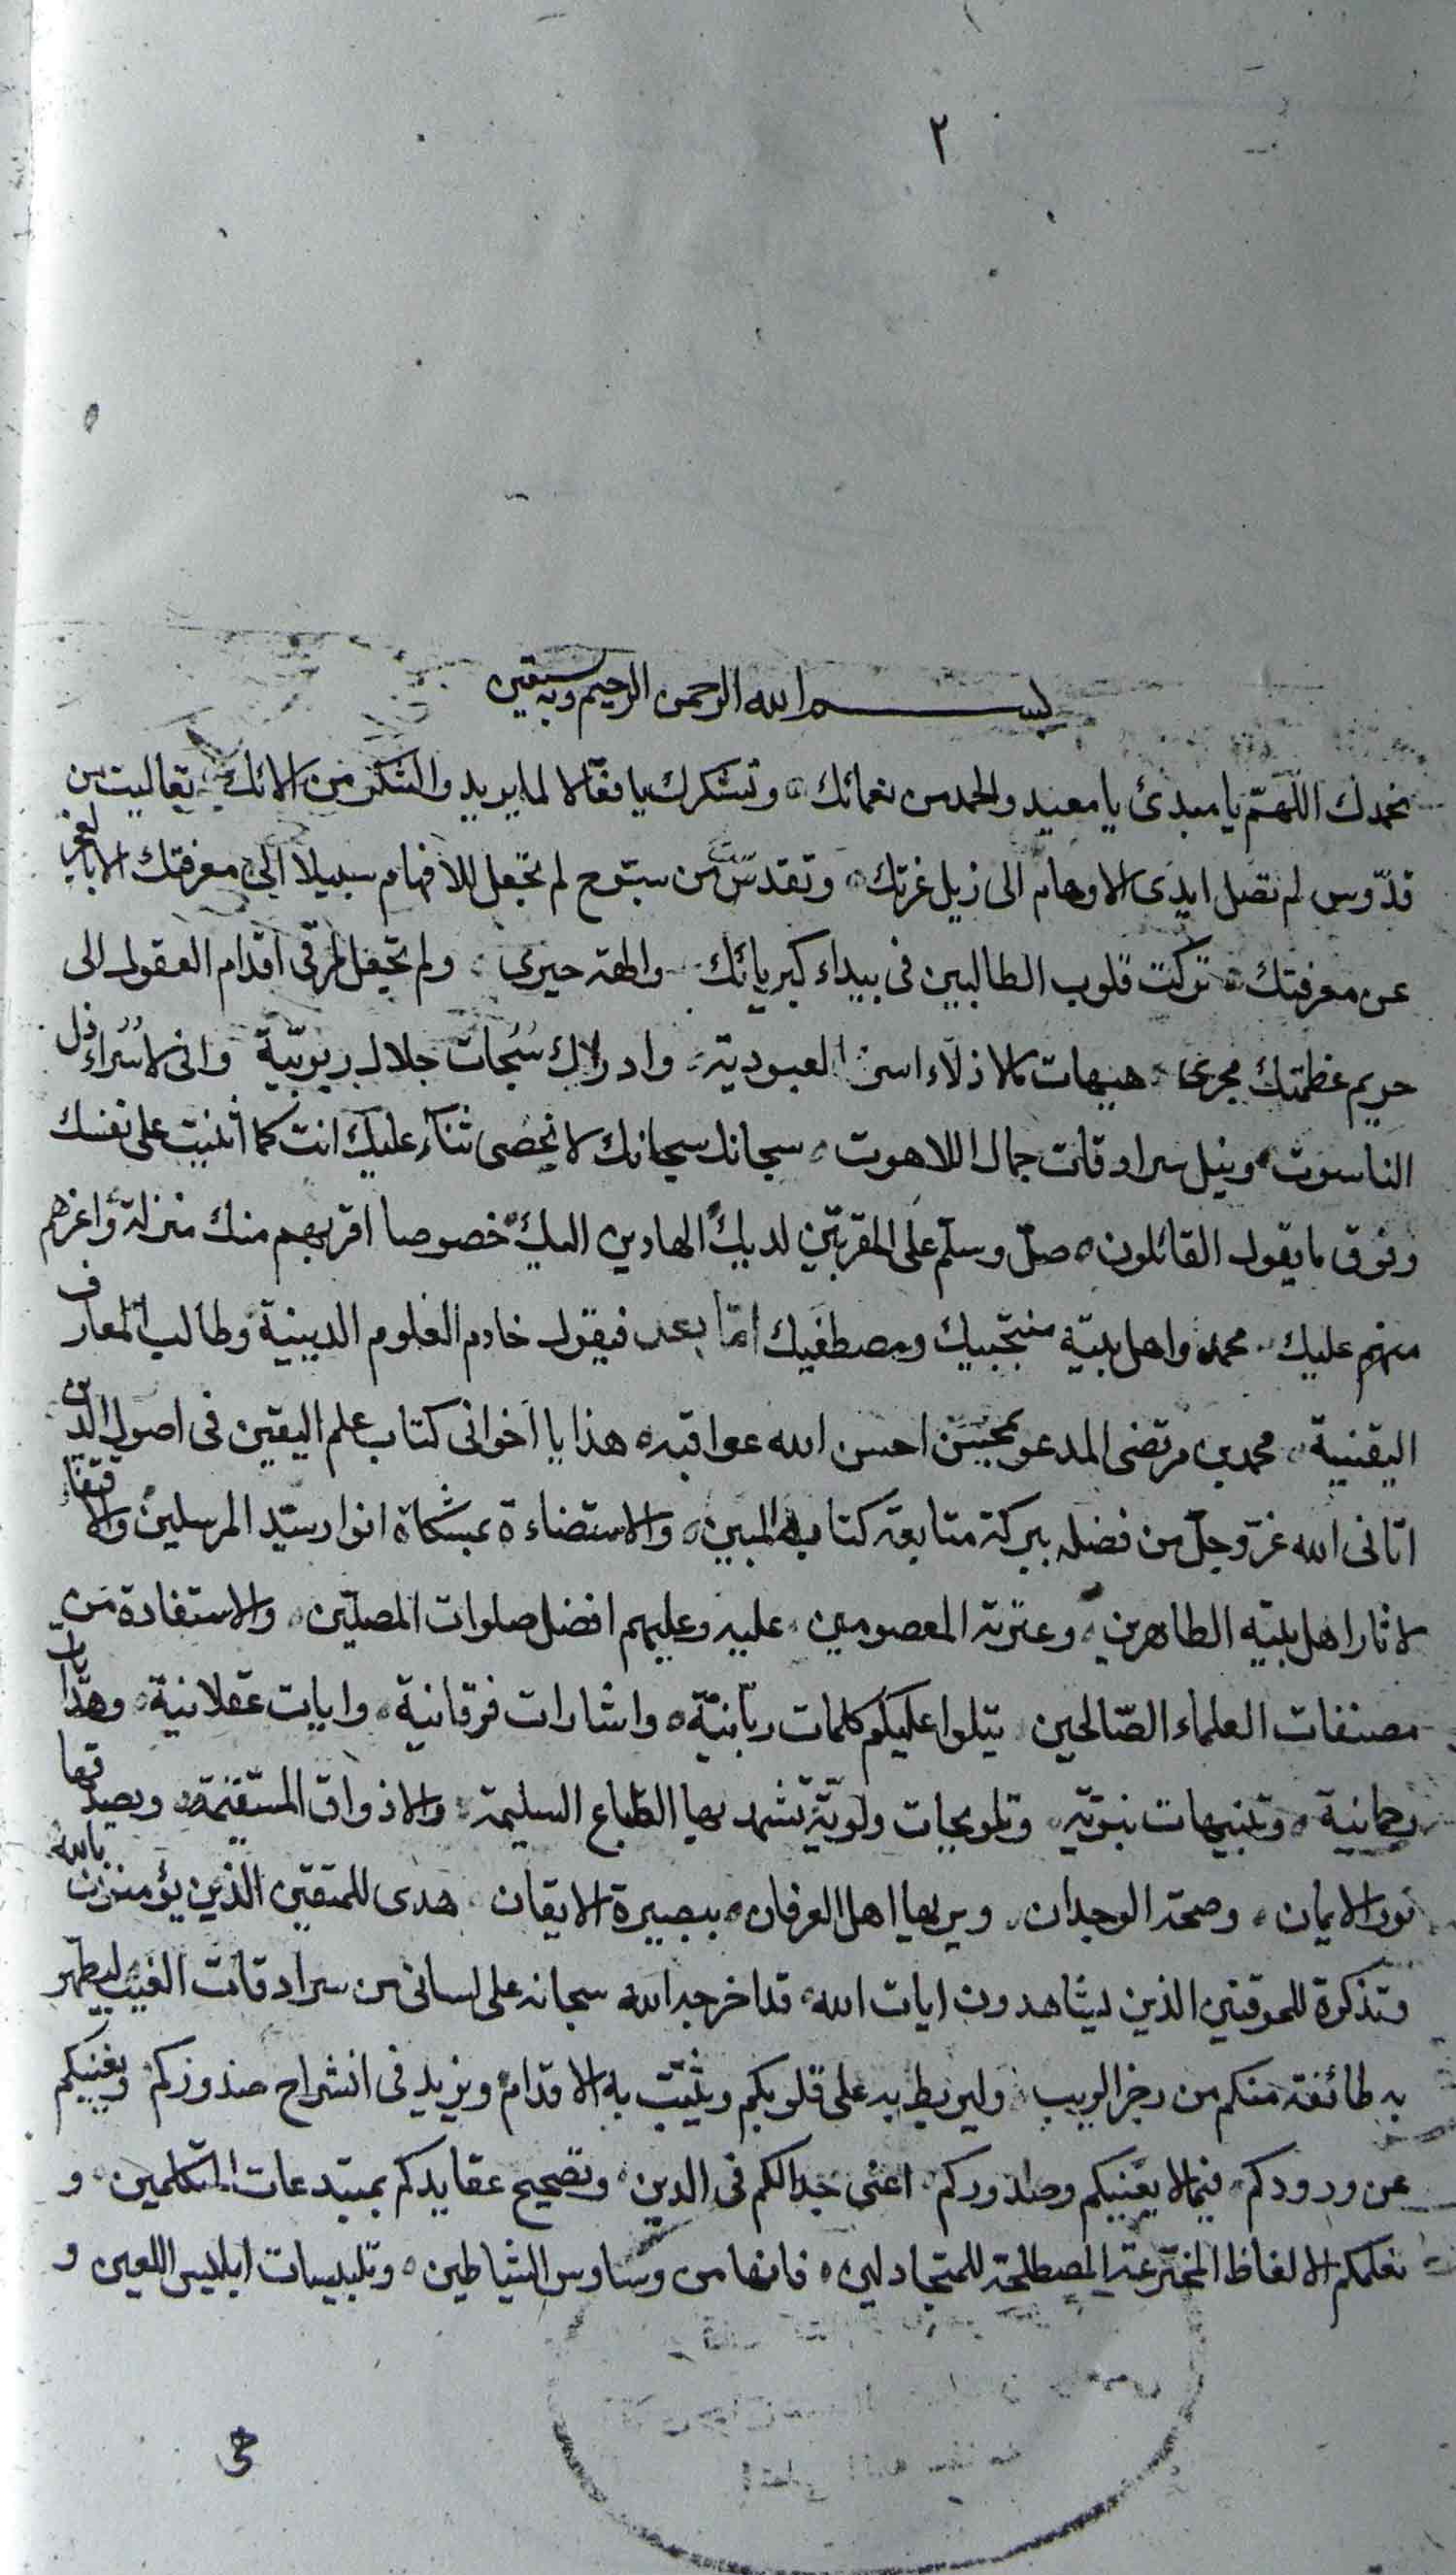 ٢
بسم الله الرحمن الرحيم وبه نستعين
نحمدك اللهمّ يا مبدئ يا معيد والحمد من نعمائك، ونشكرك يا فعّالا لما يريد والشكر من الائك، تعاليت من
قدّوس لم تصل ايدى الاوهام الى ذيل عزتك، وتقدّست من سبّوح لم تجعل للافهام سبيلا الى معرفتك الا بالعجز
عن معرفتك، تركت قلوب الطالبين فى بيداء كبريائك والهة حيرى، ولم تجعل لمرقى اقدام العقول الى
حريم عظمتك مجرى، هيهات ما لاذلاء اسر العبودية، وادراك سُبُحات جلال ربوبيّة وانى لاسُراء ذل
الناسوت، ونيل سرادقات جمال اللاهوت، سبحانك سبحانك لا نحصى ثناء عليك انت كما اثنيت على نفسك
وفوق ما يقول القائلون، صلّ وسلّم على المقربّين لديك الهادين اليك خصوصا اقربهم منك منزلة واعزهم
منهم عليك، محمد واهل بيته منتجبيك ومصطفيك امّا بعد فيقول خادم العلوم الدينية وطالب المعارف
اليقنية، محمد بن مرتضى المدعو بمحسن احسن الله عواقبه، هذا يا اخوانى كتاب علم اليقين فى اصول الدين
اتانى الله عزّ وجلّ من فضله ببركة متابعة كتابه المبين، والاستضاءة بمشكاة انوار سيّد المرسلين والاقتفاء
لاثار اهل بيته الطاهرين، وعترته المعصومين، عليه وعليهم افضل صلوات المصلّين، والاستفادة من
مصنفات العلماء الصّالحين يتلوا عليكم كلمات ربّانيّة، واشارات فرقانية، وايات عقلانية، وهدايات
رحمانية، وتنبيهات نبويّة، وتلويحات ولويّة تشهد بها الطباع السليمة، والاذواق المستقيمة، ويصدقها
نور الايمان، وصحة الوجدان، ويريها اهل العرفان، ببصيرة الايقان، هدى للمتقين الذين يؤمنون بالله
وتذكرة للموقنين الذين يشاهدون ايات الله، قد اخرجه الله سبحانه على لسانى من سرادقات الغيب ليطهر
به طائفة منكم من رجز الريب، وليربط به على قلوبكم ويثبّت به الاقدام، ويزيد فى انشراح صدوركم ويغنيكم
عن ورودكم فيما لا يعنيكم وصدوركم، اعنى جدالكم فى الدين، وتصحيح عقايدكم بمبتدعات المتكلمين، و
تعلمكم الالفاظ المخترعة المصطلحة للمتجادلين، فانها من وساوس الشياطين، وتلبيسات ابليس اللعين و